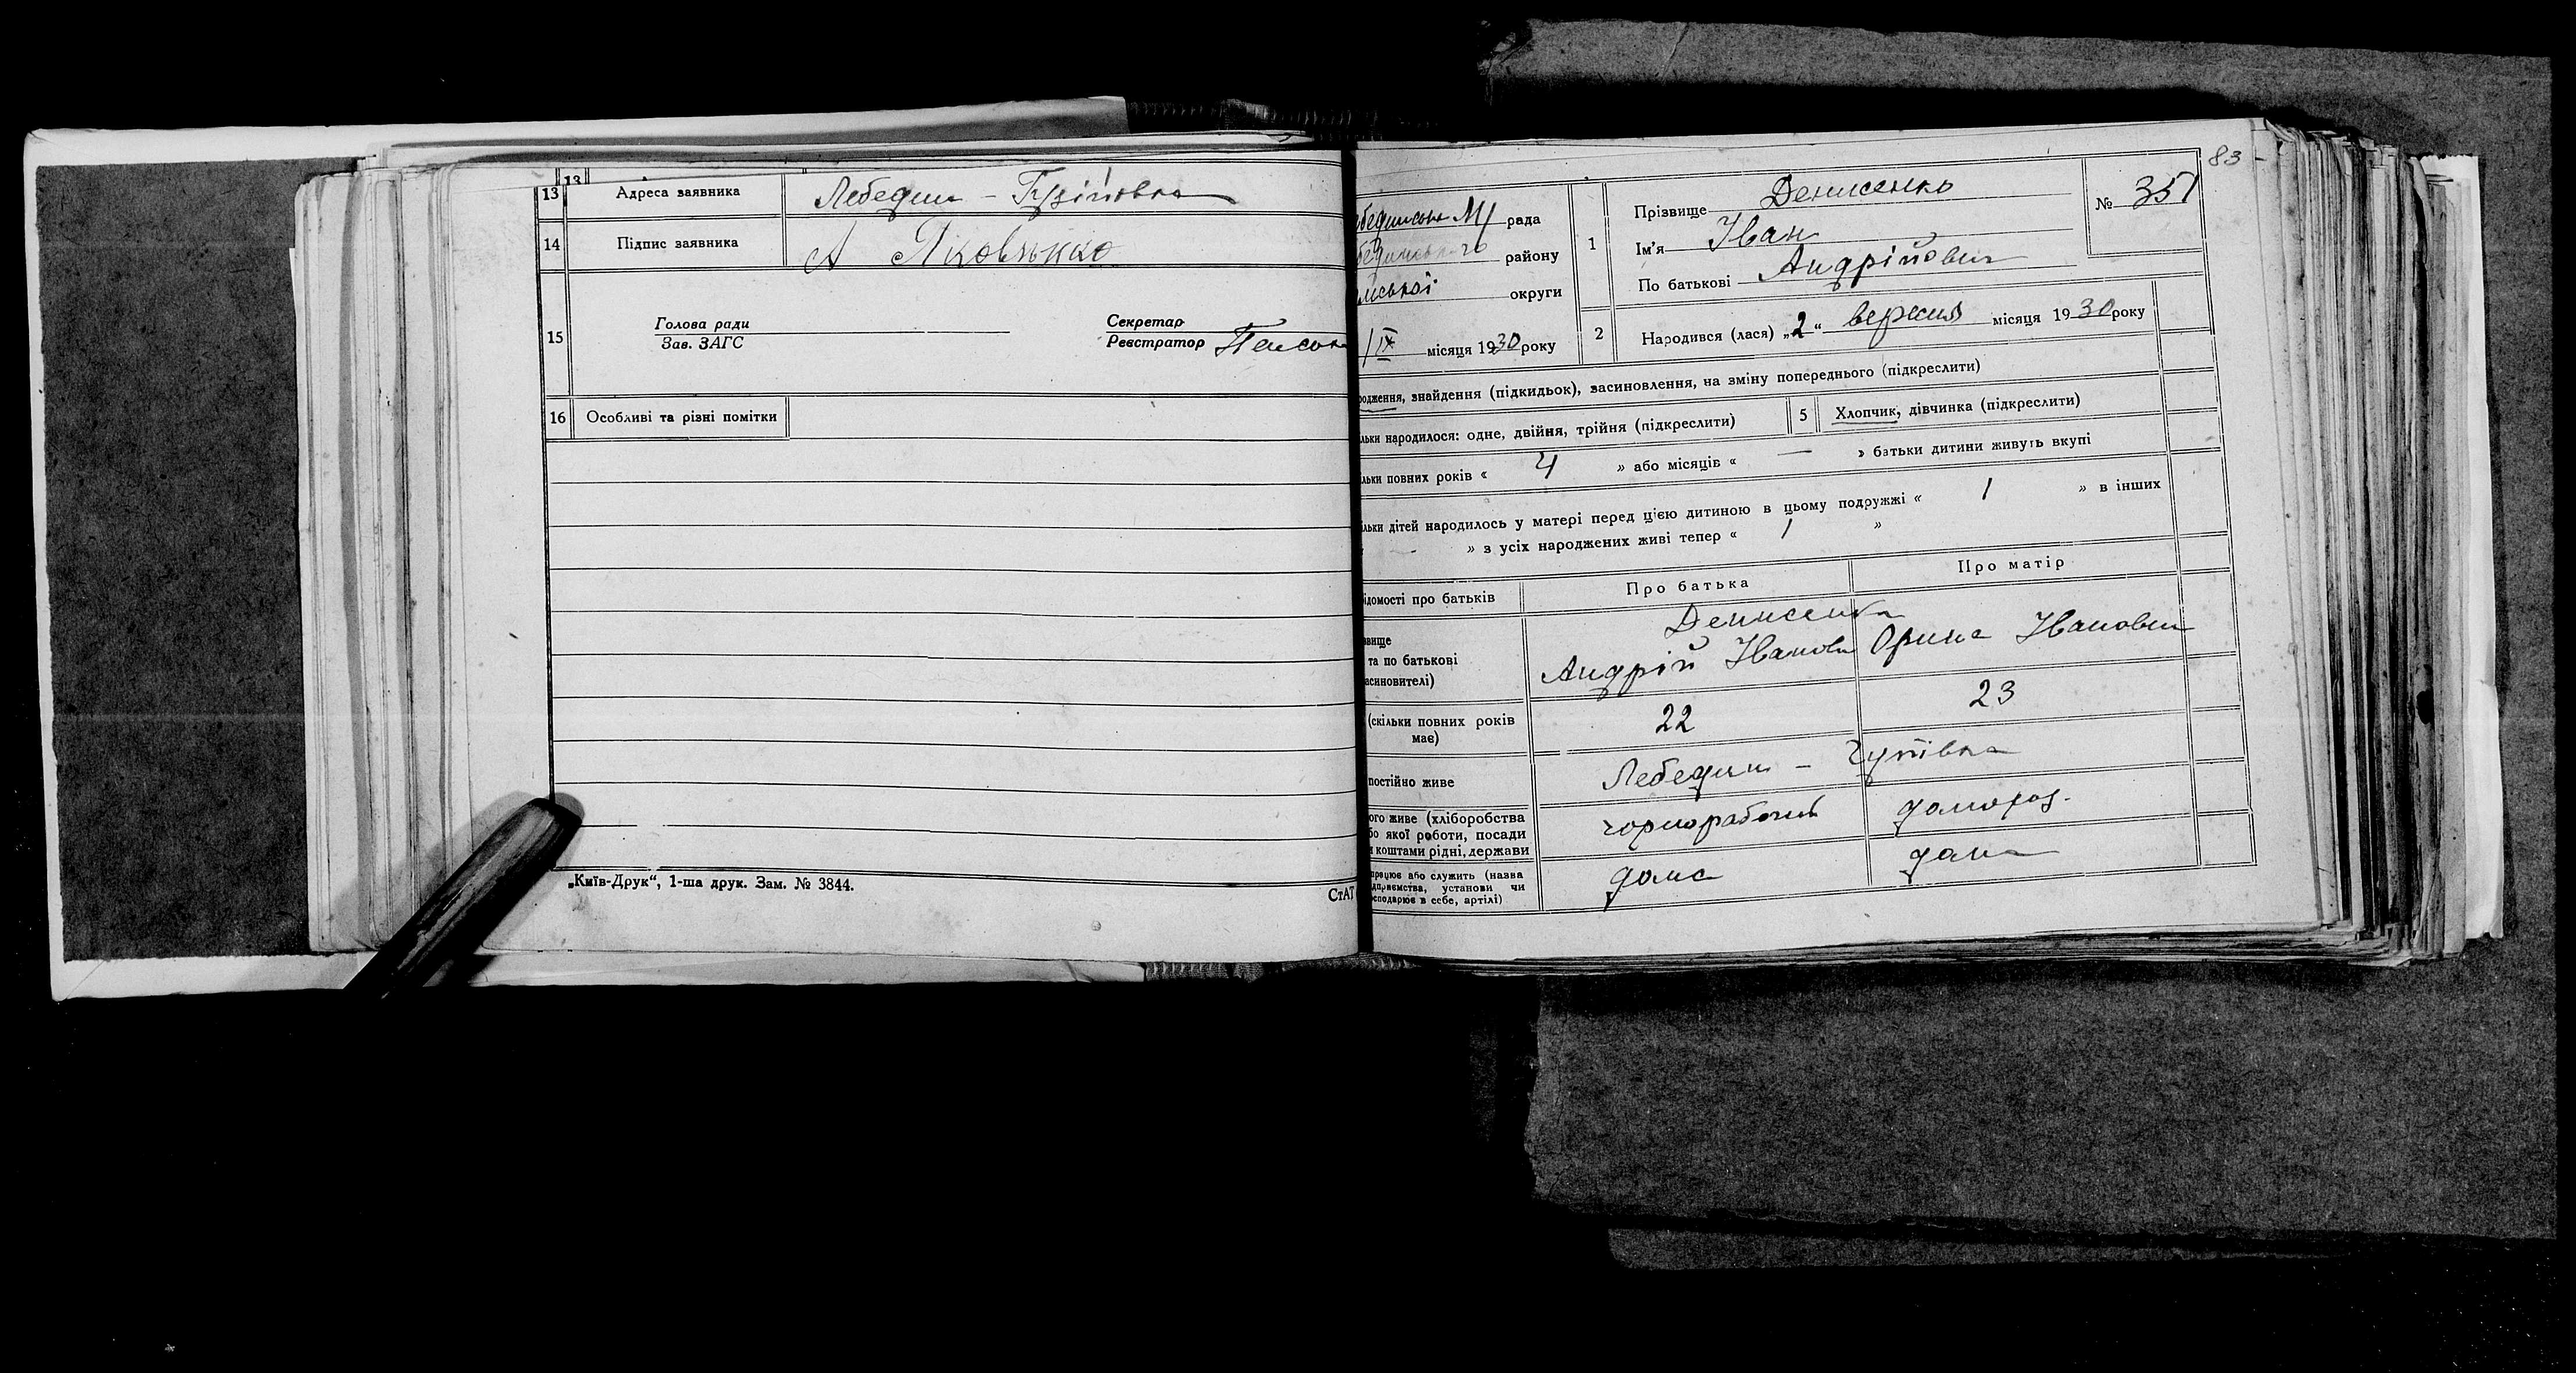 13 Адреса заявника Лебедин –
14 Підпис заявника А Яковенко
15 Голова ради
Зав. ЗАГС
Секретар
Реєстратор
16 Особливі та різні помітки
„Київ-Друк“, 1-ша друк. Зам. № 3844.
СтАТ
83
рада
району
округи
IX місяця 1930 року
1 Прізвище Денисенко
№ 351
Ім'я Іван
По батькові Андрійович
2 Народився (лася) „2“ вересня місяця 1930 року
родження, знайдення (підкидьок), засиновлення, на зміну попереднього (підкреслити)
льки народилося: одне, двійня, трійня (підкреслити) 5 Хлопчик, дівчинка (підкреслити)
льки повних років « 4 » або місяців « — » батьки дитини живуть вкупі
льки дітей народилось у матері перед цією дитиною в цьому подружжі « 1 » в інших
» з усіх народжених живі тепер « 1 »
ідомості про батьків Про батька Про матір
звище Денисенко
та по батькові Андрій Іванови Орина Іванови
асиновителі)
(скільки повних років має) 22 23
постійно живе Лебедин –
ого живе (хліборобства
бо якої роботи, посади
и коштами рідні, держави
чорнорабочий домогос.
працює або служить (назва
дприємства, установи чи
сподарює в себе, артілі)
дома дома